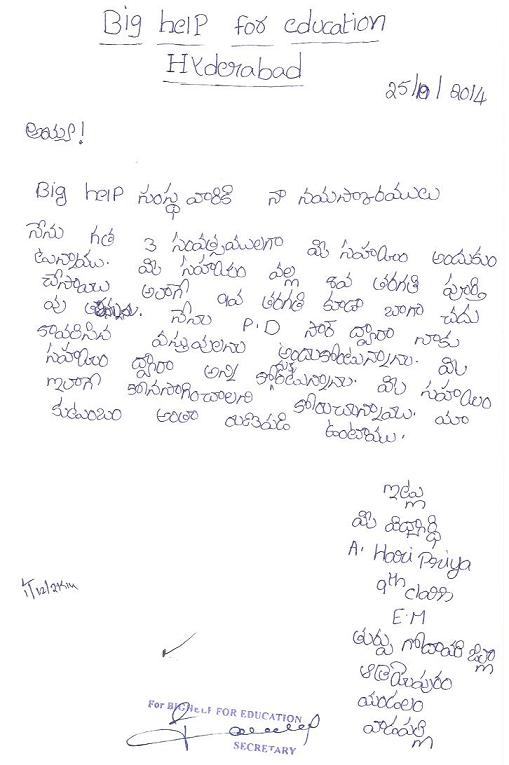 Big help for education
Hyderabad
25/8/2014
అయ్యా!
Big help సంస్థ వారికి నా నమస్కారములు
నేను గత 3 సంవత్సములుగా మీ సహయం అందుకుం
టున్నాను. మీ సహయం వల్ల 8వ తరగతి పూర్తి
చేసాను అలాగే 9వ తరగతి కూడా బాగా చదు
వు నేను P.D సార్ ద్వారా నాకు
కావలిసిన వస్తువులను అందుకోంటున్నాను. మీ
సహయం ద్వారా అన్ని మీ సహయం
ఇలాగే కోనసాగించాలని కోరుచున్నాను. మా
కుటుంబం అంతా ఉంటాము.
ఇట్లు
మీ విధ్యార్థి
A. Hari Priya
9th class
E.M
తుర్పు గోదావరి జిల్లా
ఆత్రేయపురం
మండలం
వాడపల్లి
For BIG HELP FOR EDUCATION
SECRETARY